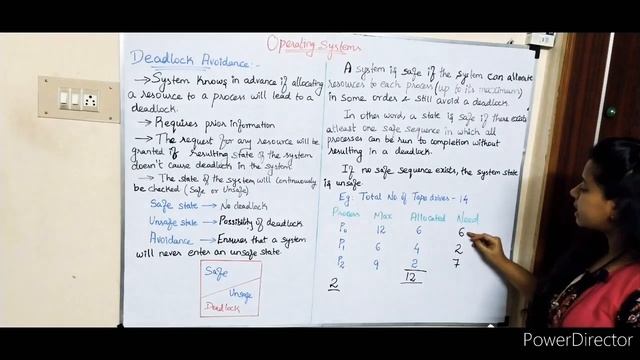 Operating Systems
Deadlock Avoidance:-
→ System knows in advance if allocating
a resource to a process will lead to a
deadlock.
→ Requires prior information
→ The request for any resource will be
granted if resulting state of the system
doesn't cause deadlock in the system.
→ The state of the system will continuously
be checked (Safe or Unsafe)
Safe state → No deadlock
Unsafe state → Possibility of deadlock
Avoidance → Ensures that a system
will never enter an unsafe state
Safe
Unsafe
Deadlock
A system is safe if the system can allocate
resources to each process (up to its maximum)
in some order & still avoid a deadlock.
In other word, a state is safe if there exists
atleast one safe sequence in which all
processes can be run to completion without
resulting in a deadlock.
If no safe sequence exists, the system state
is unsafe.
Eg: Total No of Tape drives - 14
Process Max Allocated Need
P0 12 6 6
P1 6 4 2
P2 9 2 7
2 12
PowerDirector